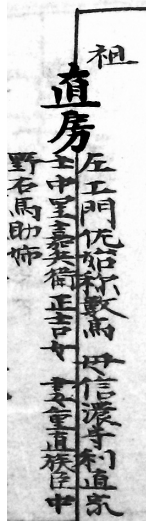 祖
直房
左エ門佐始称數馬 母信濃守利直家
士中里嘉兵衛正吉女 妻重直族臣中
野右馬助姉